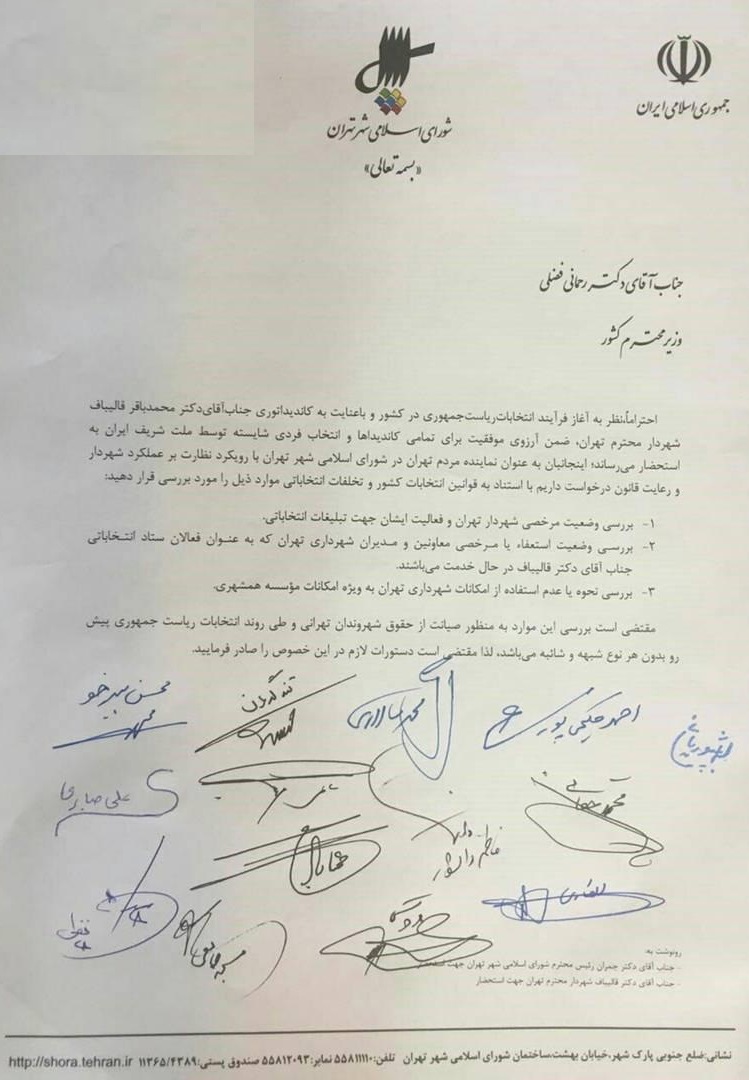 جمهوری اسلامی ایران
شورای اسلامی شهر تهران
«بسمه تعالی»
جناب آقای دکتر رحمانی فضلی
وزیر محترم کشور
احتراماً،نظر به آغاز فرآیند انتخابات‌ریاست‌جمهوری در کشور و باعنایت به کاندیداتوری جناب‌آقای‌دکتر محمدباقر قالیباف
شهردار محترم تهران، ضمن آرزوی موفقیت برای تمامی کاندیداها و انتخاب فردی شایسته توسط ملت شریف ایران به
استحضار می‌رساند؛ اینجانبان به عنوان نماینده مردم تهران در شورای اسلامی شهر تهران با رویکرد نظارت بر عملکرد شهردار
و رعایت قانون درخواست داریم با استناد به قوانین انتخابات کشور و تخلفات انتخاباتی موارد ذیل را مورد بررسی قرار دهید:
۱- بررسی وضعیت مرخصی شهردار تهران و فعالیت ایشان جهت تبلیغات انتخاباتی.
۲- بررسی وضعیت استعفاء یا مرخصی معاونین و مدیران شهرداری تهران که به عنوان فعالان ستاد انتخاباتی
جناب آقای دکتر قالیباف در حال خدمت می‌باشند.
۳- بررسی نحوه یا عدم استفاده از امکانات شهرداری تهران به ویژه امکانات مؤسسه همشهری.
مقتضی است بررسی این موارد به منظور صیانت از حقوق شهروندان تهرانی و طی روند انتخابات ریاست جمهوری پیش
رو بدون هر نوع شبهه و شائبه می‌باشد، لذا مقتضی است دستورات لازم در این خصوص را صادر فرمایید.
محسن سرخو
تندگویان
محمد سالاری
احمد حکیمی پور
علی صابری
محمد حقانی
فاطمه دانشور
رونوشت به:
- جناب آقای دکتر چمران رئیس محترم شورای اسلامی شهر تهران جهت استحضار
- جناب آقای دکتر قالیباف شهردار محترم تهران جهت استحضار
نشانی:ضلع جنوبی پارک شهر،خیابان بهشت،ساختمان شورای اسلامی شهر تهران تلفن:۵۵۸۱۱۱۱۰ نمابر:۵۵۸۱۲۰۹۳ صندوق پستی:۱۱۳۶۵/۴۳۸۹ http://shora.tehran.ir